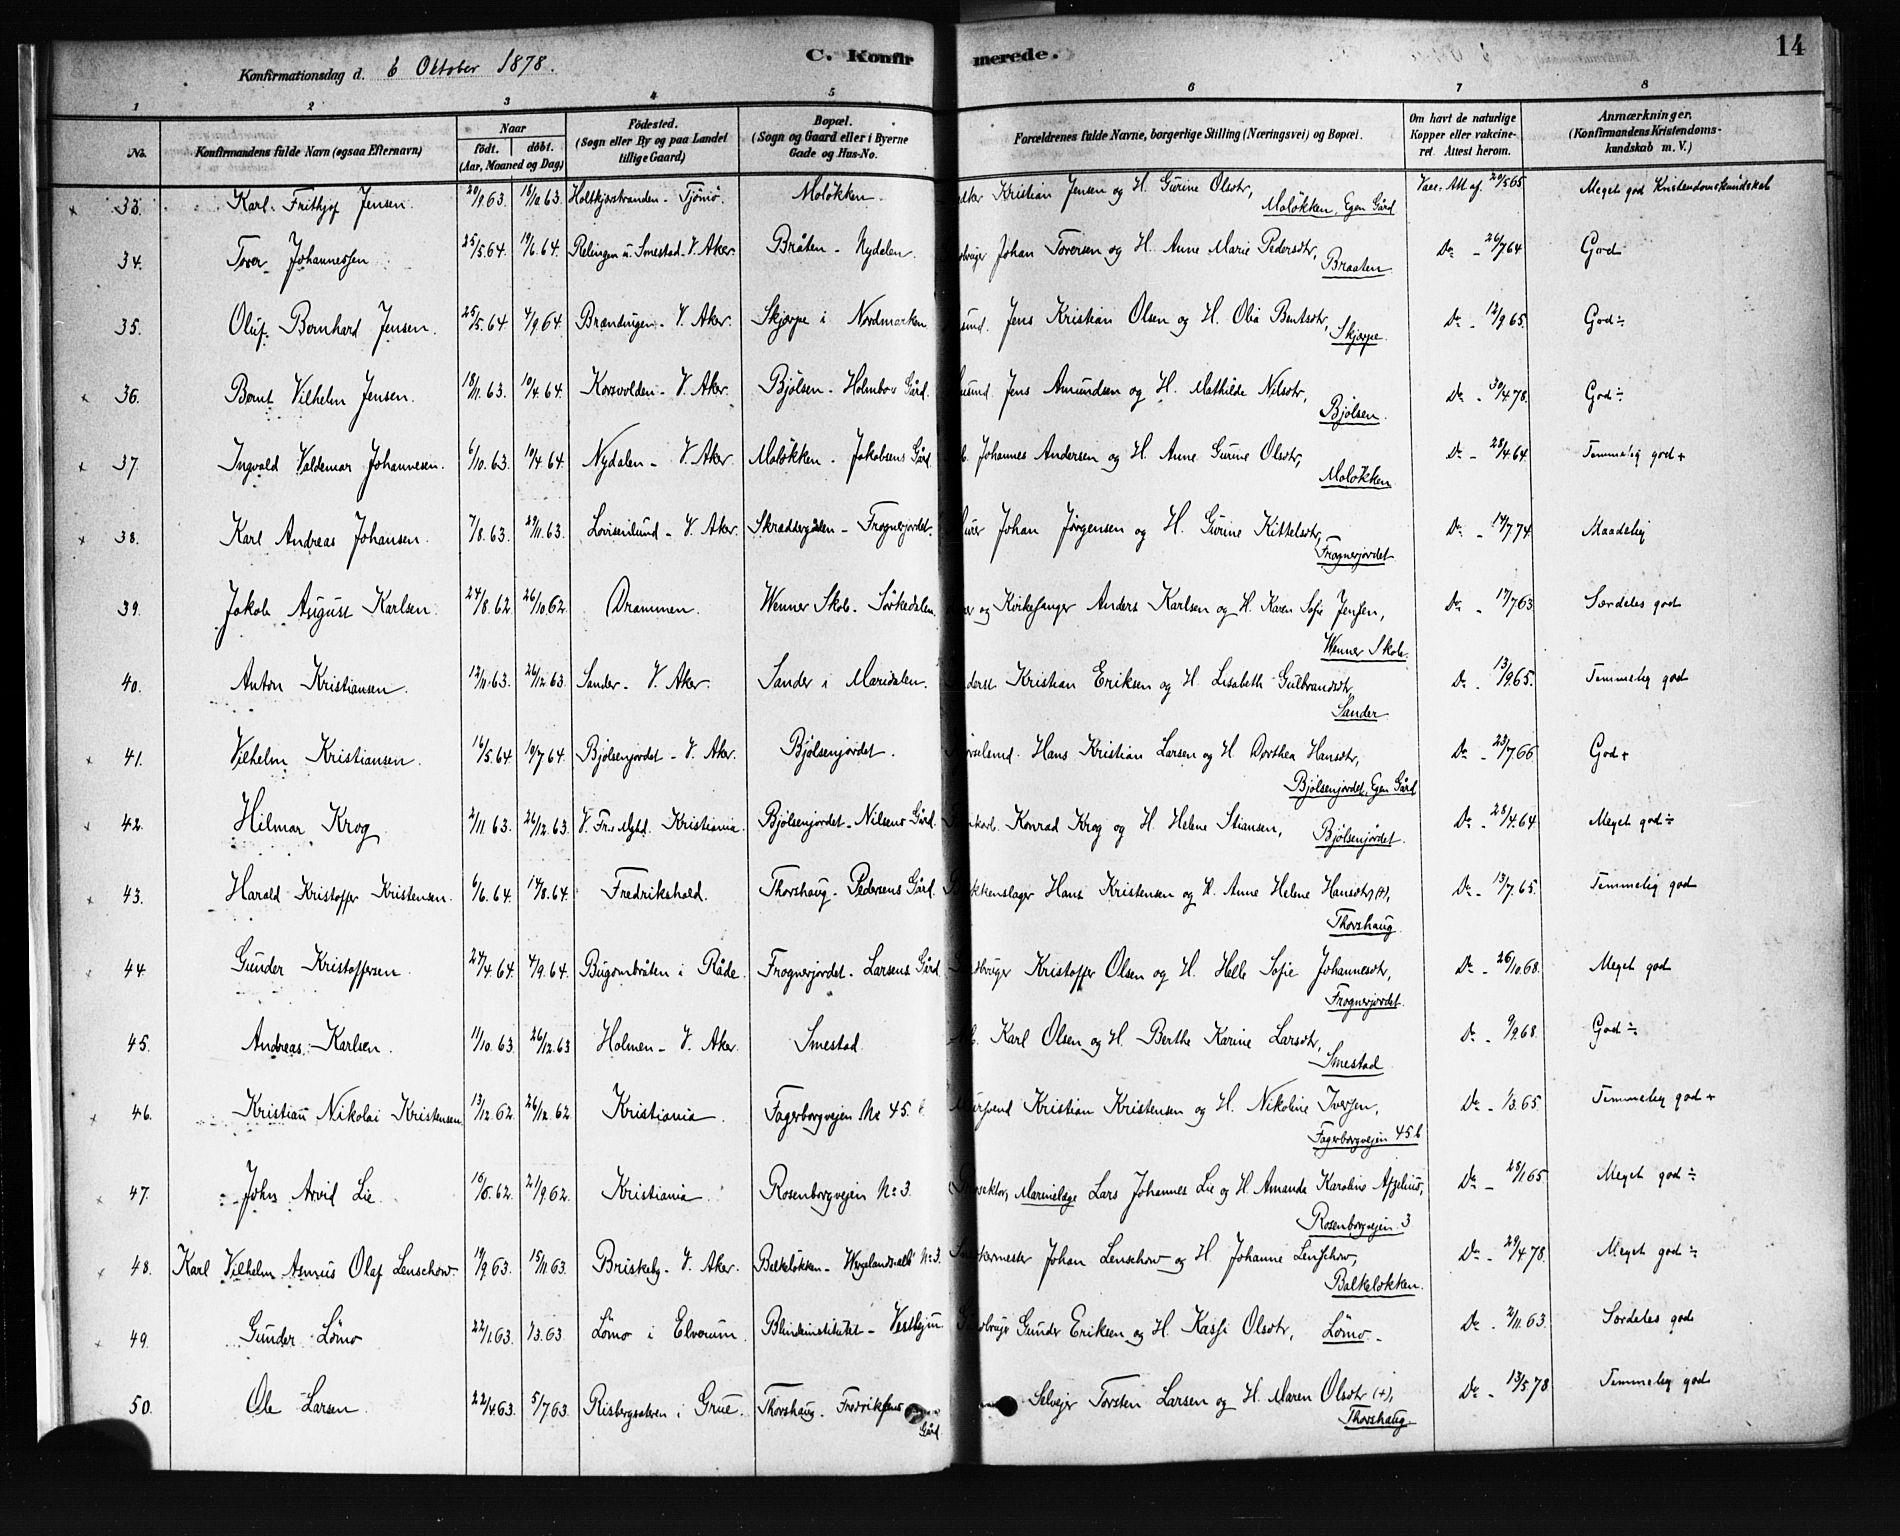 Konfirmationsdag d. 6 Oktober 1878.
C. Konfirmerede.
14
1 2 3 4 5 6 7 8
No. Konfirmandens fulde Navn (ogsaa Efternavn) Naar født. døbt. (Aar, Maaned og Dag) Fødested. (Sogn eller By og paa Landet tillige Gaard) Bopæl. (Sogn og Gaard eller i Byerne Gade og Hus-No. Forældrenes fulde Navne, borgerlige Stilling (Næringsvei) og Bopæl. Om havt de naturlige Kopper eller vaccineret. Attest herom. Anmærkninger. (Konfirmandens Kristendomskundskab m. V.)
33. Karl Frithjof Jensen 20/9.63. 18/10.63. Holtekjærstranden - Tjömö. Moløkken. Kristian Jensen og H. Gurine Olsdtr, Vacc. Att. af 20/5.65 Meget god Kristendomskundskab
Moløkken, Egen Gård
34. Tover Johannessen 25/5.64 19/6.64. u. Smestad - V. Aker. Bråten - Nydalen. Johan Toversen og H. Anne Marie Pedersdtr, Do - 26/7.64 God
Braaten
35. Oluf Bernhard Jensen. 25/5.64 4/9.64. V. Aker. Skjærpe i Nordmarken Jens Kristian Olsen og H. Olia Bentsdtr, Do - 12/9.65. God ÷
Skjærpe.
36. Bernt Vilhelm Jensen. 18/11.63. 10/4.64. Korsvolden - V. Aker. Bjølsen - Holmboes Gård. Jens Amundsen og H. Mathilde Nilsdtr, Do - 30/4.78. God ÷
Bjølsen.
37. Ingvald Valdemar Johannesen. 6/10.63. 10/4.64. Nydalen - V. Aker. Moløkken - Jakobsens Gård. Johannes Andersen og H. Anne Gurine Olsdtr, Do - 28/4.64. Temmelig god +
Moløkken
38. Karl Andreas Johansen. 7/8.63. 29/11.63. Lovisenlund - V. Aker. Frognerjordet. Johan Jörgensen og H. Gurine Kittelsdtr, Do - 14/7.74. Maadelig
Frognerjordet
39. Jakob August Karlsen. 24/8.62. 26/10.62. Drammen. Wenner Skole - Sörkedalen og Kirkesanger Anders Karlsen og H. Karen Sofie Jensen, Do - 17/7.63 Særdeles god
Wenner Skole.
40. Anton Kristiansen. 12/11.63. 26/12.63. Sander - V. Aker. Sander i Maridalen. Kristian Eriksen og H. Lisabeth Gulbrandsdtr, Do - 13/9.65. Temmelig god
Sander.
41. Vilhelm Kristiansen. 16/5.64. 10/7.64. Bjølsenjordet - V. Aker. Bjølsenjordet. Hans Kristian Larsen og H. Dorthea Hansdtr, Do - 23/7.66. God +
Bjølsenjordet, Egen Gård
42. Hilmar Krog 2/11.63. 26/12.63. Kristiania. Bjølsenjordet - Nilsens Gård. Konrad Krog og H. Helene Stiansen, Do - 28/4.64 Meget god ÷
Bjølsenjordet.
43. Harald Kristoffer Kristensen. 6/6.64. 14/8.64. Fredrikshald. Thorshaug - Pedersens Gård. Hans Kristensen og H. Anne Helene Hansdtr (+), Do - 13/7.65. Temmelig god
Thorshaug
44. Gunder Kristoffersen. 24/4.64. 4/9.64. i Råde. Frognerjordet - Larsens Gård Kristoffer Olsen og H. Helle Sofie Johannesdtr, Do - 26/10.68. Meget god
Frognerjordet.
45. Andreas Karlsen. 11/10.63. 26/12.63 Holmen - V. Aker. Smestad. Karl Olsen og H. Berthe Karine Larsdtr, Do - 9/9.68. God ÷
Smestad
46. Kristian Nikolai Kristensen. 13/12.62. 26/12.62 Kristiania. Fagerborgvejen No 45. b Kristian Kristensen og H. Nikoline Iversen, Do - 1/3.65. Temmelig god +
Fagerborgvejen 45 b
47. John Arvid Lie. 16/6.62. 21/9.62. Kristiania. Rosenborgvejen No 3. Prosektor, Marinelæge Lars Johannes Lie og H. Amanda Karoline Afzelius, Do - 28/1.65. Meget god ÷
Rosenborgvejen 3
48. Karl Vilhelm Asmus Olaf Lenschow. 19/9.63. 15/11.63. Briskeby - V. Aker. Balkeløkken - No 3. Johan Lenschow og H. Johanne Lenschow, Do - 29/4.78. Meget god ÷
Balkeløkken.
49. Gunder Lömo 22/1.63. 1/3.63. Lömo i Elverum. Blindeinstitutet - Vesthjem Gunder Eriksen og H. Kasfi Olsdtr, Lömo. Do - 2/11.63. Særdeles god
50. Ole Larsen. 22/4.63. 5/7.63. i Grue. Thorshaug. Fredriksens Gård Selvejer Torsten Larsen og H. Maren Olsdtr (+), Do - 13/5.78 Temmelig god
Thorshaug